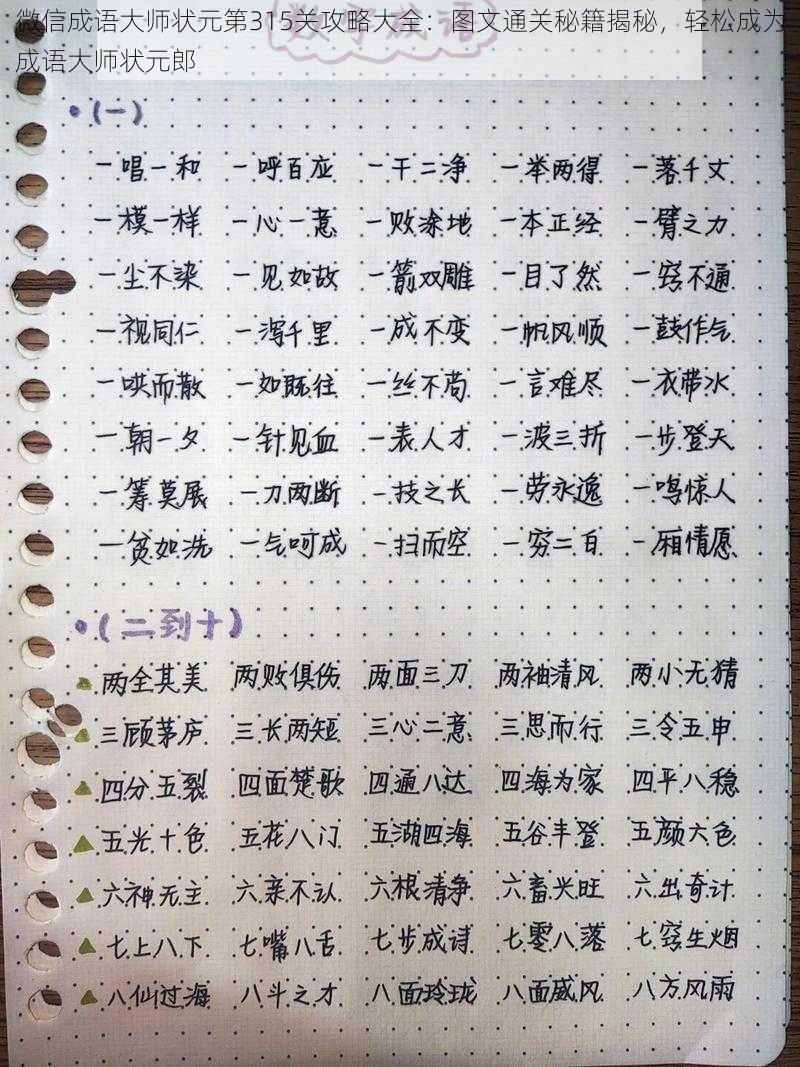 微信成语大师状元第315关攻略大全：图文通关秘籍揭秘，轻松成为
成语大师状元郎
数字成语
•(一)
一唱一和 一呼百应 一干二净 一举两得 一落千丈
一模一样 一心一意 一败涂地 一本正经 一臂之力
一尘不染 一见如故 一箭双雕 一目了然 一窍不通
一视同仁 一泻千里 一成不变 一帆风顺 一鼓作气
一哄而散 一如既往 一丝不苟 一言难尽 一衣带水
一朝一夕 一针见血 一表人才 一波三折 一步登天
一筹莫展 一刀两断 一技之长 一劳永逸 一鸣惊人
一贫如洗 一气呵成 一扫而空 一穷二白 一厢情愿
•(二到十)
两全其美 两败俱伤 两面三刀 两袖清风 两小无猜
三顾茅庐 三长两短 三心二意 三思而行 三令五申
四分五裂 四面楚歌 四通八达 四海为家 四平八稳
五光十色 五花八门 五湖四海 五谷丰登 五颜六色
六神无主 六亲不认 六根清净 六畜兴旺 六出奇计
七上八下 七嘴八舌 七步成诗 七零八落 七窍生烟
八仙过海 八斗之才 八面玲珑 八面威风 八方风雨